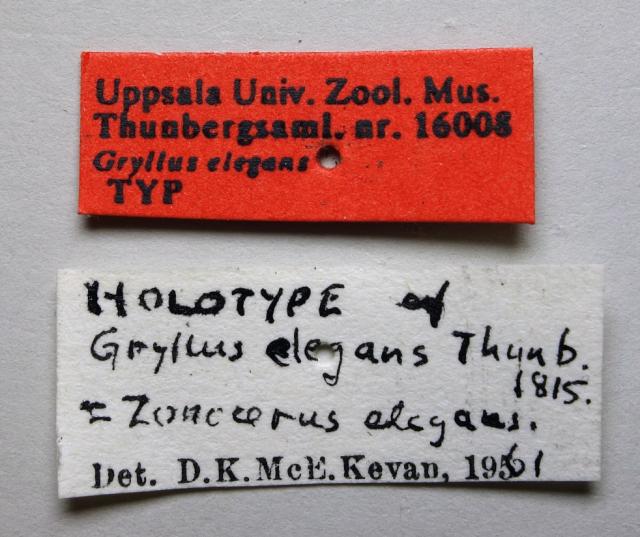 Uppsala Univ. Zool. Mus.
Thunbergsaml. nr. 16008
Gryllus elegans
TYP
HOLOTYPE of
Gryllus elegans Thunb.
1815.
= Zonocerus elegans.
Det. D.K.McE.Kevan, 1961